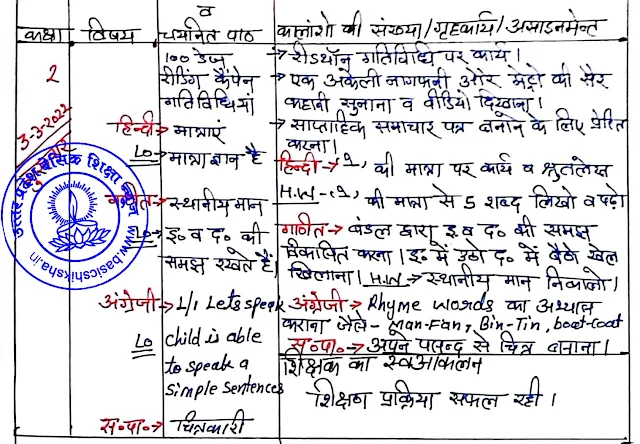 व
कक्षा विषय चयनित पाठ कालांशो की संख्या/गृहकार्य/असाइनमेन्ट
2
3-3-2022
गुरुवार
100 डेज
रीडिंग कैंपेन
गतिविधियां
हिन्दी→ मात्राएं
LO→ मात्रा ज्ञान है
गणित→ स्थानीय मान
LO→ इ० व द० की
समझ रखते हैं।
अंग्रेजी→ L/1 Let's speak
LO child is able
to speak a
simple sentences
स०पा०→ चित्रकारी
→ रीडथॉन गतिविधि पर कार्य।
→ एक अकेली नागफनी और मेट्रो की सैर
कहानी सुनाना व वीडियो दिखाना।
→ साप्ताहिक समाचार पत्र बनाने के लिए प्रेरित
करना।
हिन्दी→ की मात्रा पर कार्य व श्रुतलेख
H.W→ की मात्रा से 5 शब्द लिखो व पढ़ो
गणित→ बंडल द्वारा इ. व द० की समझ
विकसित करना। इ० में उठो द० में बैठो खेल
खिलाना। H.W→ स्थानीय मान निकालो।
अंग्रेजी→ Rhyme words का अभ्यास
कराना जैसे - Man-Fan, Bin-Tin, boat-coat
स०पा०→ अपने पसन्द से चित्र बनाना।
शिक्षक का स्वआकलन
शिक्षण प्रक्रिया सफल रही।
उत्तर प्रदेश बेसिक शिक्षा
www.basicshiksha.in